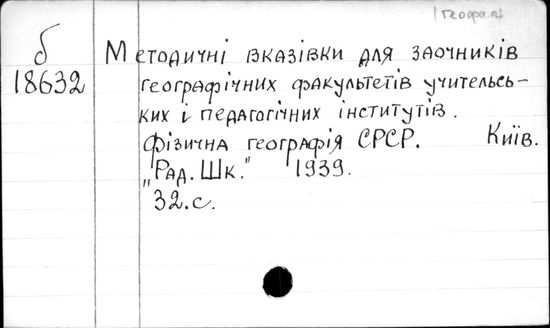 б
18632
Методичні вказівки для заочників
географічних факультетів учительсь-
ких і педагогічних інститутів.
Фізична географія СРСР. Київ.
„Рад. Шк." 1939.
32.с.